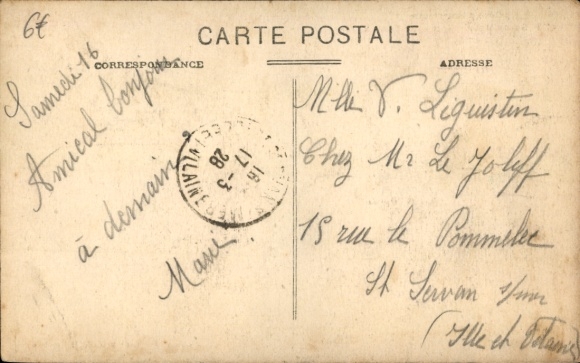 6€
CARTE POSTALE
CORRESPONDANCE
ADRESSE
Samedi 16
Amical bonjour
à demain
18
17 - 3
28
ILLE-ET-VILAINE
Mlle V. Leguistin
Chez Mr Le Joliff
15 rue le Pommelec
St Servan s/mer
(Ille et Vilaine